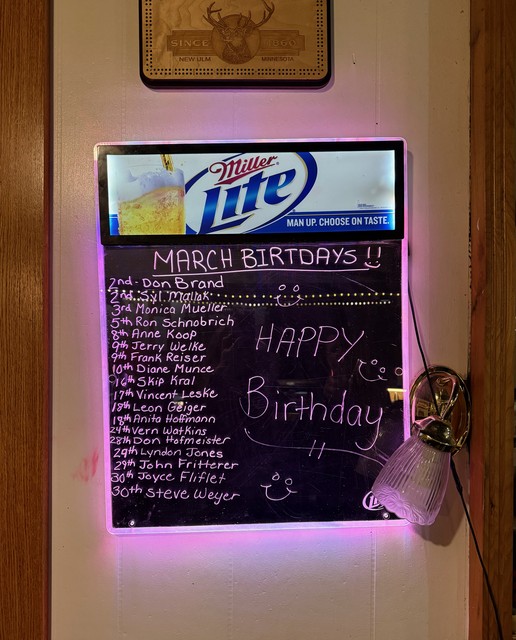 SINCE 1860
NEW ULM MINNESOTA
Miller
Lite
MAN UP. CHOOSE ON TASTE.
MARCH BIRTDAYS !!
2nd - Don Brand
2nd Syl Mallak
3rd Monica Mueller
5th Ron Schnobrich
8th Anne Koop
9th Jerry Welke
9th Frank Reiser
10th Diane Munce
16th Skip Kral
17th Vincent Leske
18th Leon Geiger
18th Anita Hoffmann
24th Vern Watkins
28th Don Hofmeister
29th Lyndon Jones
29th John Fritterer
30th Joyce Fliflet
30th Steve Weyer
HAPPY
Birthday
!!